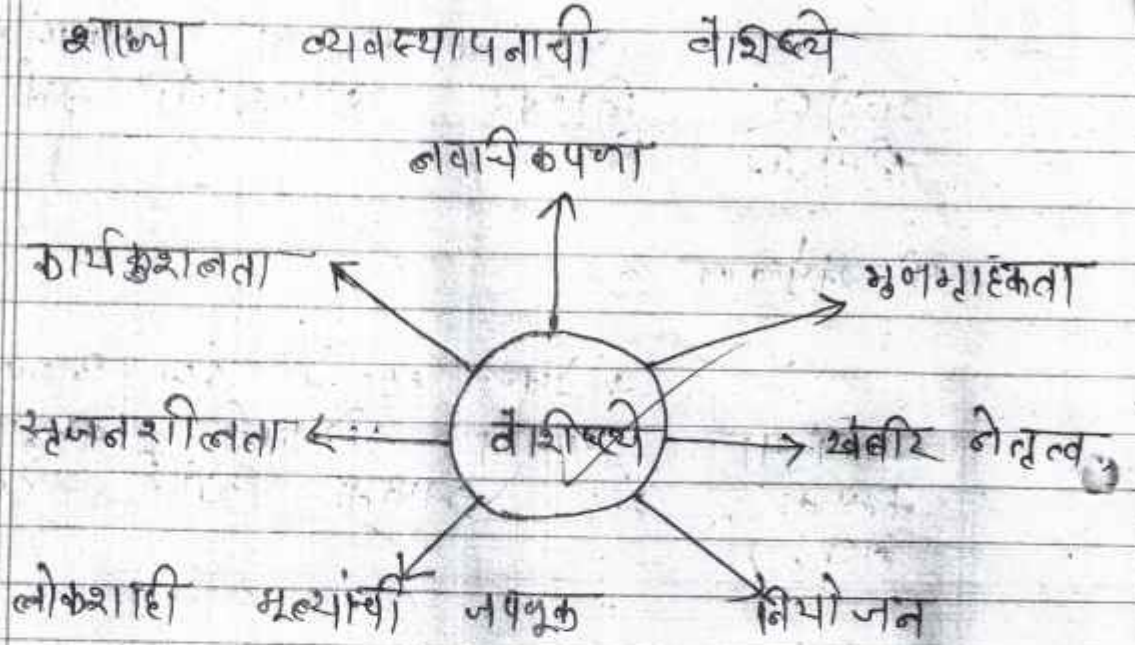 शाळा व्यवस्थापनाची वैशिष्ट्ये
कार्यकुशलता
गुणग्राहकता
सृजनशीलता
वैशिष्ट्ये
खंबीर नेतृत्व
लोकशाही मूल्यांची जपणूक
नियोजन